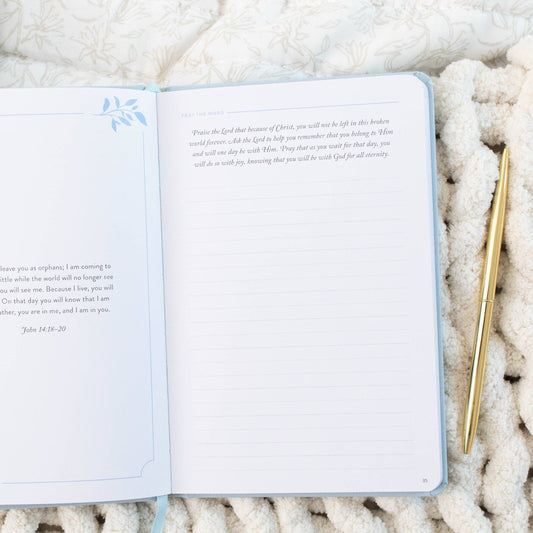 leave you as orphans; I am coming to
little while the world will no longer see
you will see me. Because I live, you will
On that day you will know that I am
you are in me, and I am in you.
John 14:18–20
PRAY THE WORD
Praise the Lord that because of Christ, you will not be left in this broken
world forever. Ask the Lord to help you remember that you belong to Him
and will one day be with Him. Pray that as you wait for that day, you
will do so with joy, knowing that you will be with God for all eternity.
35